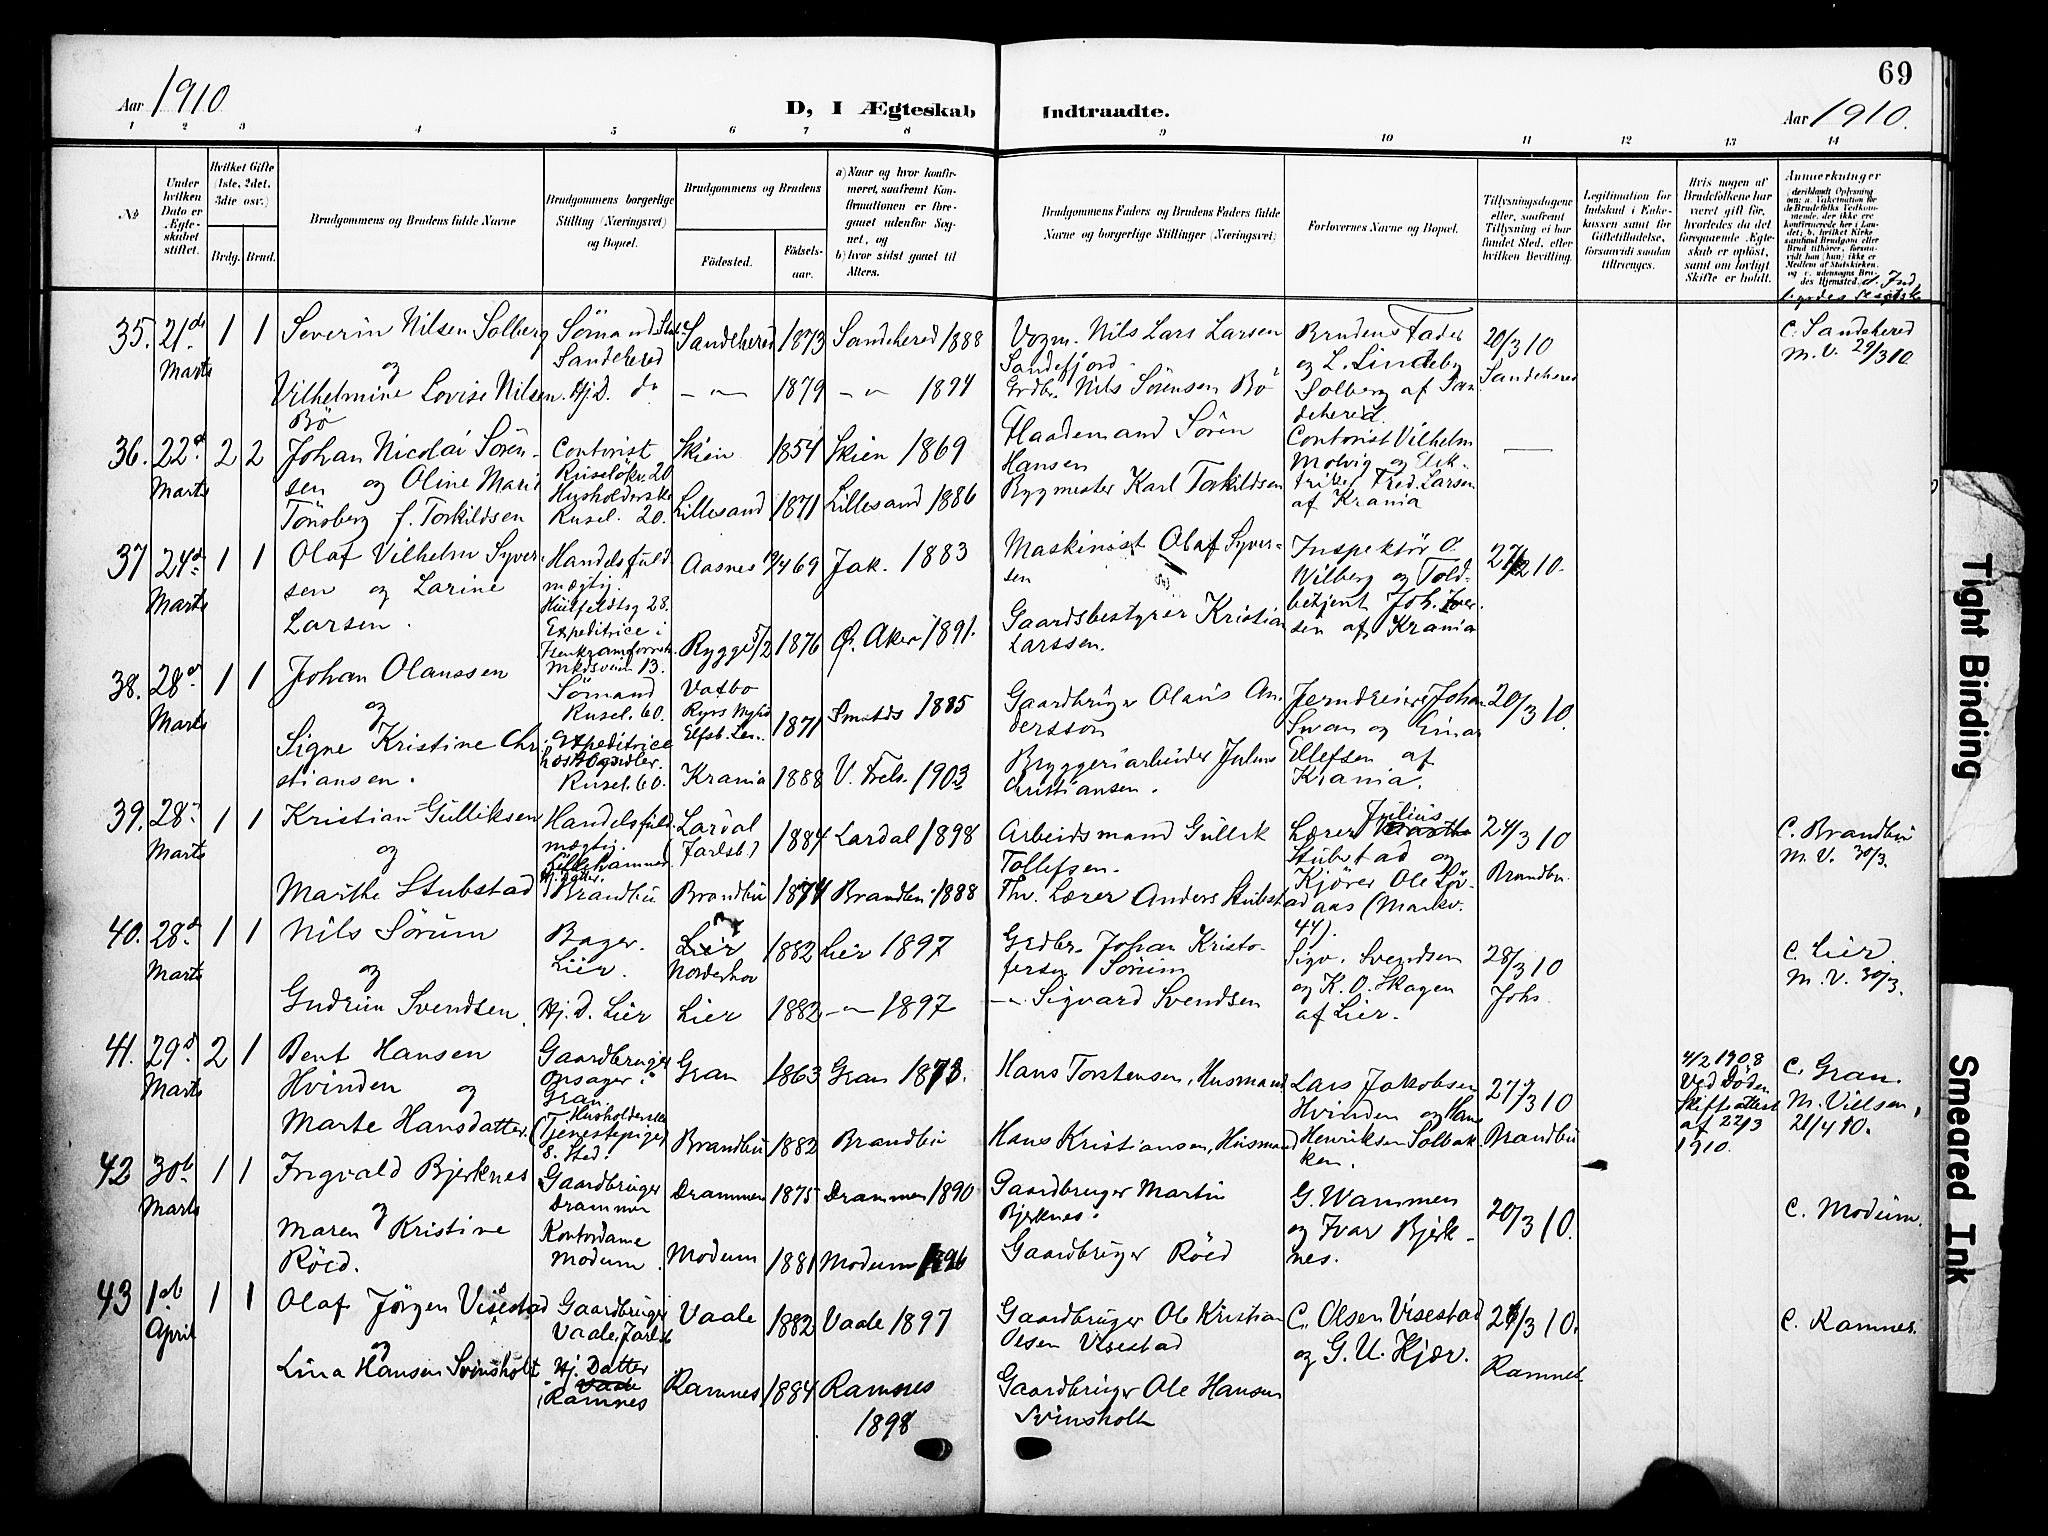 69
Aar 1910
D, I Ægteskab Indtraadte.
Aar 1910.
1 2 3 4 5 6 7 8 9 10 11 12 13 14
№
Under hvilken Dato er Ægteskabet stiftet.
Hvilket Gifte (1ste, 2det, 3die osv.)
Brdg. Brud.
Brudgommens og Brudens fulde Navne
Brudgommens borgerlige Stilling (Næringsvei) og Bopæl.
Brudgommens og Brudens
Födested.
Födselsaar.
a) Naar og hvor konfirmeret, saafremt Konfirmationen er foregaaet udenfor Sognet, og
b) hvor sidst gaaet til Alters.
Brudgommens Faders og Brudens Faders fulde Navne og borgerlige Stillinger (Næringsvei)
Forlovernes Navne og Bopæl.
Tillysningsdagene eller, saafremt Tillysning ei har fundet Sted, efter hvilken Bevilling.
Legitimation for Indskud i Enkekassen samt for Giftetilladelse, forsaavidt saadan tiltrænges.
Hvis nogen af Brudefolkene har været gift för, hvorledes da det foregaaende Ægteskab er oplöst, samt om lovligt Skifte er holdt.
Anmærkninger
35. 21de Marts 1 1
Severin Nilsen Solberg
og
Vilhelmine Lovise Nilsen
Bö
Sömand
Sandehered
Hj.D. do
Sandehered 1873 Sandehered 1888
— " — 1879 — " — 1894
Vogm. Nils Lars Larsen
Sandefjord
Grdbr. Nils Sörensen Bö
Brudens Fader
og L. Lindeby
Solberg af San
dehered.
20/3 10
Sandehered
C. Sandehered
M.V. 29/3 10.
36. 22d Marts 2 2
Johan Nicolai Sören-
sen og Oline Marie
Tönsberg f. Torkildsen
Contorist
Ruselökv. 20
Husholderske
Rusel. 20.
Skien 1854 Skien 1869
Lillesand 1871 Lillesand 1886
Flaademand Sören
Hansen
Bygmester Karl Torkildsen
Contorist Vilhelm
Molvig og Elek-
triker Fred. Larsen
af Krania
37 24d Marts 1 1
Olaf Vilhelm Syver-
sen og Larine
Larsen.
Handelsfuld
mægtig.
Huitfeldtsg 28.
Expeditrice i
Aasnes 69 Jak. 1883
Rygge 5/2 1876 Ö. Aker 1891.
Maskinist Olaf Syver-
sen
Gaardsbestyrer Kristian
Larssen.
Inspektör O.
Wilberg og Told-
betjent Joh. Iver-
sen af Krania
27/2 10.
38. 28d Marts 1 1
Johan Olaussen
og
Signe Kristine Chri
stiansen.
Sömand
Rusel. 60.
Expeditrice
Rusel. 60.
Elfsb. Len. 1871 1885
Krania 1888 V. Frels. 1903
Gaardbruger Olaus An-
dersson
Bryggeriarbeider Julius
Christiansen.
Swan og Einar
Ellefsen af
Krania.
20/3 10.
39. 28d Marts 1 1
Kristian Gulliksen
og
Marthe Stubstad
Handelsfuld
mægtig.
Lillehammer
Hj. Datter.
Brandbu
Lardal
(Jarlsb.) 1884 Lardal 1898
Brandbu 1874 Brandbu 1888
Arbeidsmand Gullik
Tollefsen.
Fhv. Lærer Anders Stubstad
Lærer Julius
Stubstad og
Kjörer Ole Löv-
aas (Markv.
44).
24/3 10
Brandbu
C. Brandbu
M.V. 30/3.
40. 28d Marts 1 1
Nils Sörum
og
Gudrun Svendsen.
Bager.
Lier.
Hj. D. Lier
Lier
Norderhov 1882 Lier 1897
Lier 1882 — " — 1897
Grdbr. Johan Kristo-
fersen Sörum
— " — Sigvard Svendsen
Sigv. Svendsen
og K. O. Skagen
af Lier.
28/3 10
Johs.
C. Lier.
M.V. 30/3.
41. 29d Marts 2 1
Bent Hansen
Hvinden og
Marte Hansdatter.
Gaardbruger
Opsager
Gran.
Husholderske
(Tjenestepige)
s. Sted.
Gran 1863 Gran 1878.
Brandbu 1882 Brandbu
Hans Torstensen, Husmand
Hans Kristiansen, Husmand
Lars Jakobsen
Hvinden og Hans
Henriksen Solbak-
ken.
27/3 10
Brandbu
4/2 1908
Ved Döden
Skifteattest
af 22/3
1910.
C. Gran.
M. Villsen,
21/4 10.
42 30te Marts 1 1
Ingvald Bjerknes
og
Maren Kristine
Röed.
Gaardbruger
Drammen
Kontordame
Modum.
Drammen 1875 Drammen 1890
Modum 1881 Modum 1896
Gaardbruger Martin
Bjerknes.
Gaardbruger Röed
G. Wammen
og Ivar Bjerk-
nes.
20/3 10.
C. Modum.
43 1ste April 1 1
Olaf Jörgen Visestad
og
Lina Hansen Svinsholt
Gaardbruger
Vaale, Jarlsb.
Hj. Datter
Vaale
Ramnes
Vaale 1882 Vaale 1897
Ramnes 1884 Ramnes
1898
Gaardbruger Ole Kristian
Olsen Visestad
Gaardbruger Ole Hansen
Svinsholt
C. Olsen Visestad
og G. U. Kjær.
/3 10.
Ramnes
C. Ramnes.
Tight Binding
Smeared Ink